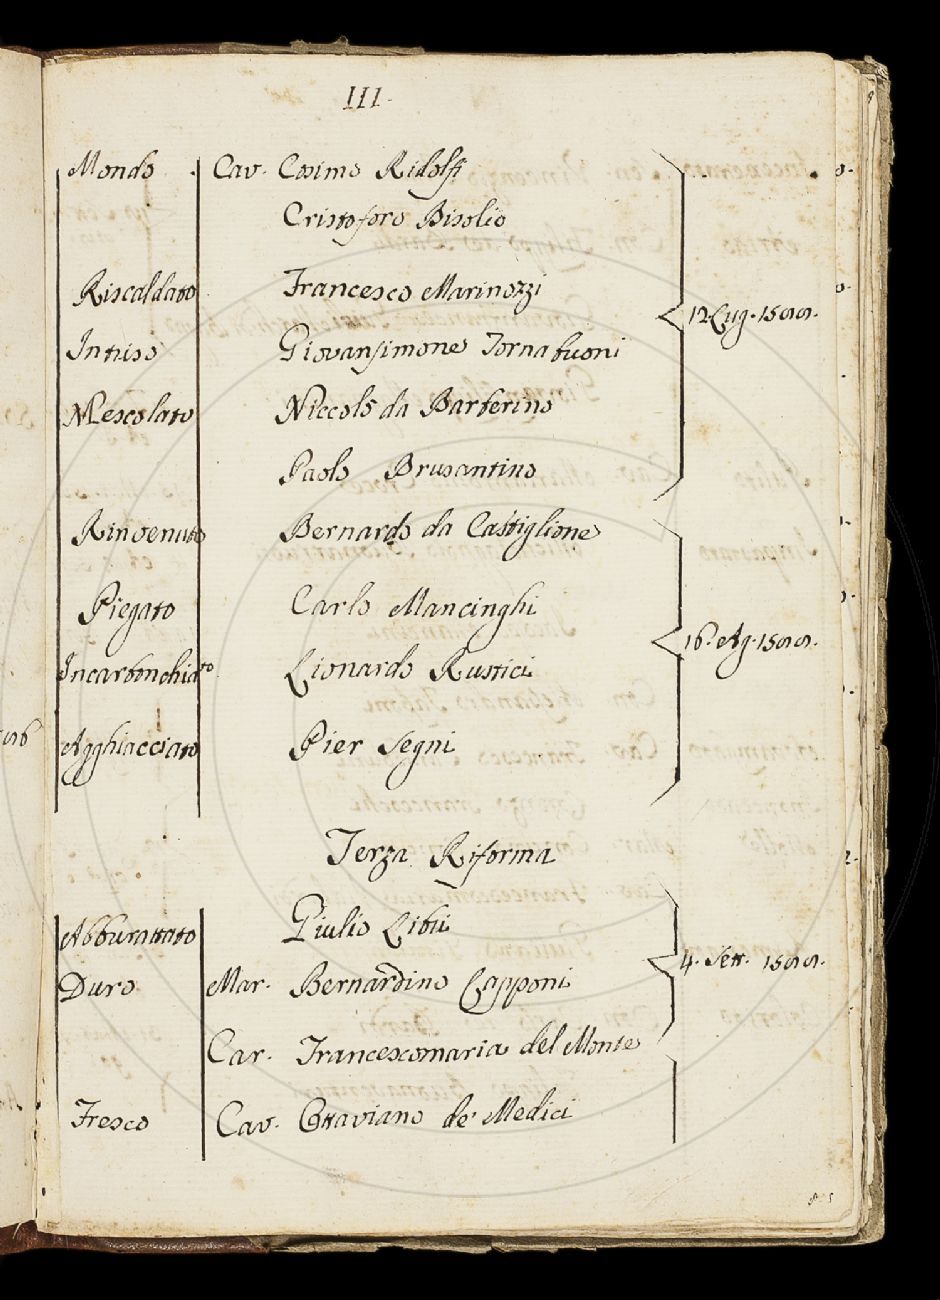 III.
Mondo Cav. Cosimo Ridolfi
Cristoforo Bisolio
Riscaldato Francesco Marinozzi
12. Lug. 1599.
Intriso Giovansimone Tornabuoni
Mescolato Niccolò da Barberino
Paolo Brusantino
Rinvenuto Bernardo da Castiglione
Piegato Carlo Mancinghi
16. Ag. 1599.
Incarbonchiato Lionardo Rustici
Agghiacciato Pier Segni
Terza Riforma
Abburattato Giulio Libii
4. Sett. 1599.
Duro Mar. Bernardino Capponi
Car. Francescomaria del Monte
Fresco Cav. Ottaviano de' Medici